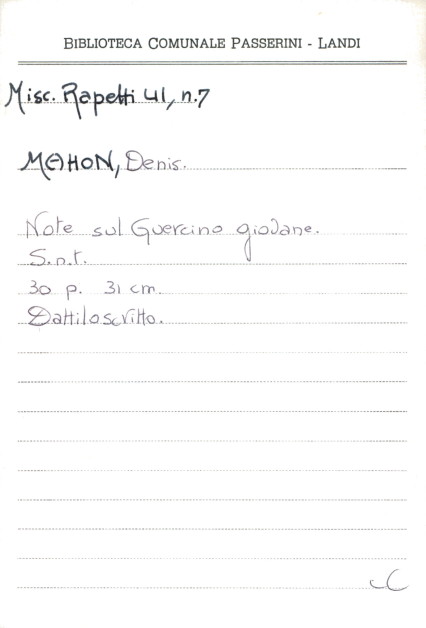 BIBLIOTECA COMUNALE PASSERINI - LANDI
Misc. Rapetti 41, n.7
MAHON, Denis.
Note sul Guercino giovane.
S.n.t.
30 p. 31 cm.
Dattiloscritto.